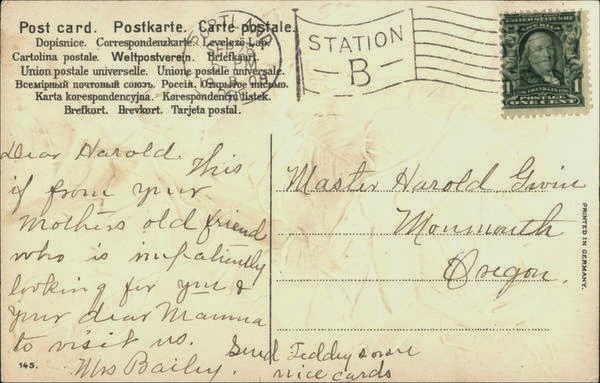 Post card. Postkarte. Carte postale.
Dopisnice. Correspondenzkarte. Levelező-Lap.
Cartolina postale. Weltpostverein. Briefkaart.
Union postale universelle. Unione postale universale.
Всемірный почтовый союзъ. Россія. Открытое письмо.
Karta korespondencyjna. Korespondenční lístek.
Brefkort. Brevkort. Tarjeta postal.
PORTLAND
SEP
PM
STATION
B
UNITED STATES OF AMERICA
FRANKLIN
1 1
POSTAGE
ONE CENT
Dear Harold. This
if from your
mothers old friend
who is impatiently
looking for you &
your dear Mamma
to visit us.
Mrs Bailey.
Send Teddy some
nice cards
Master Harold Gwin
Monmouth
Oregon.
PRINTED IN GERMANY.
145.